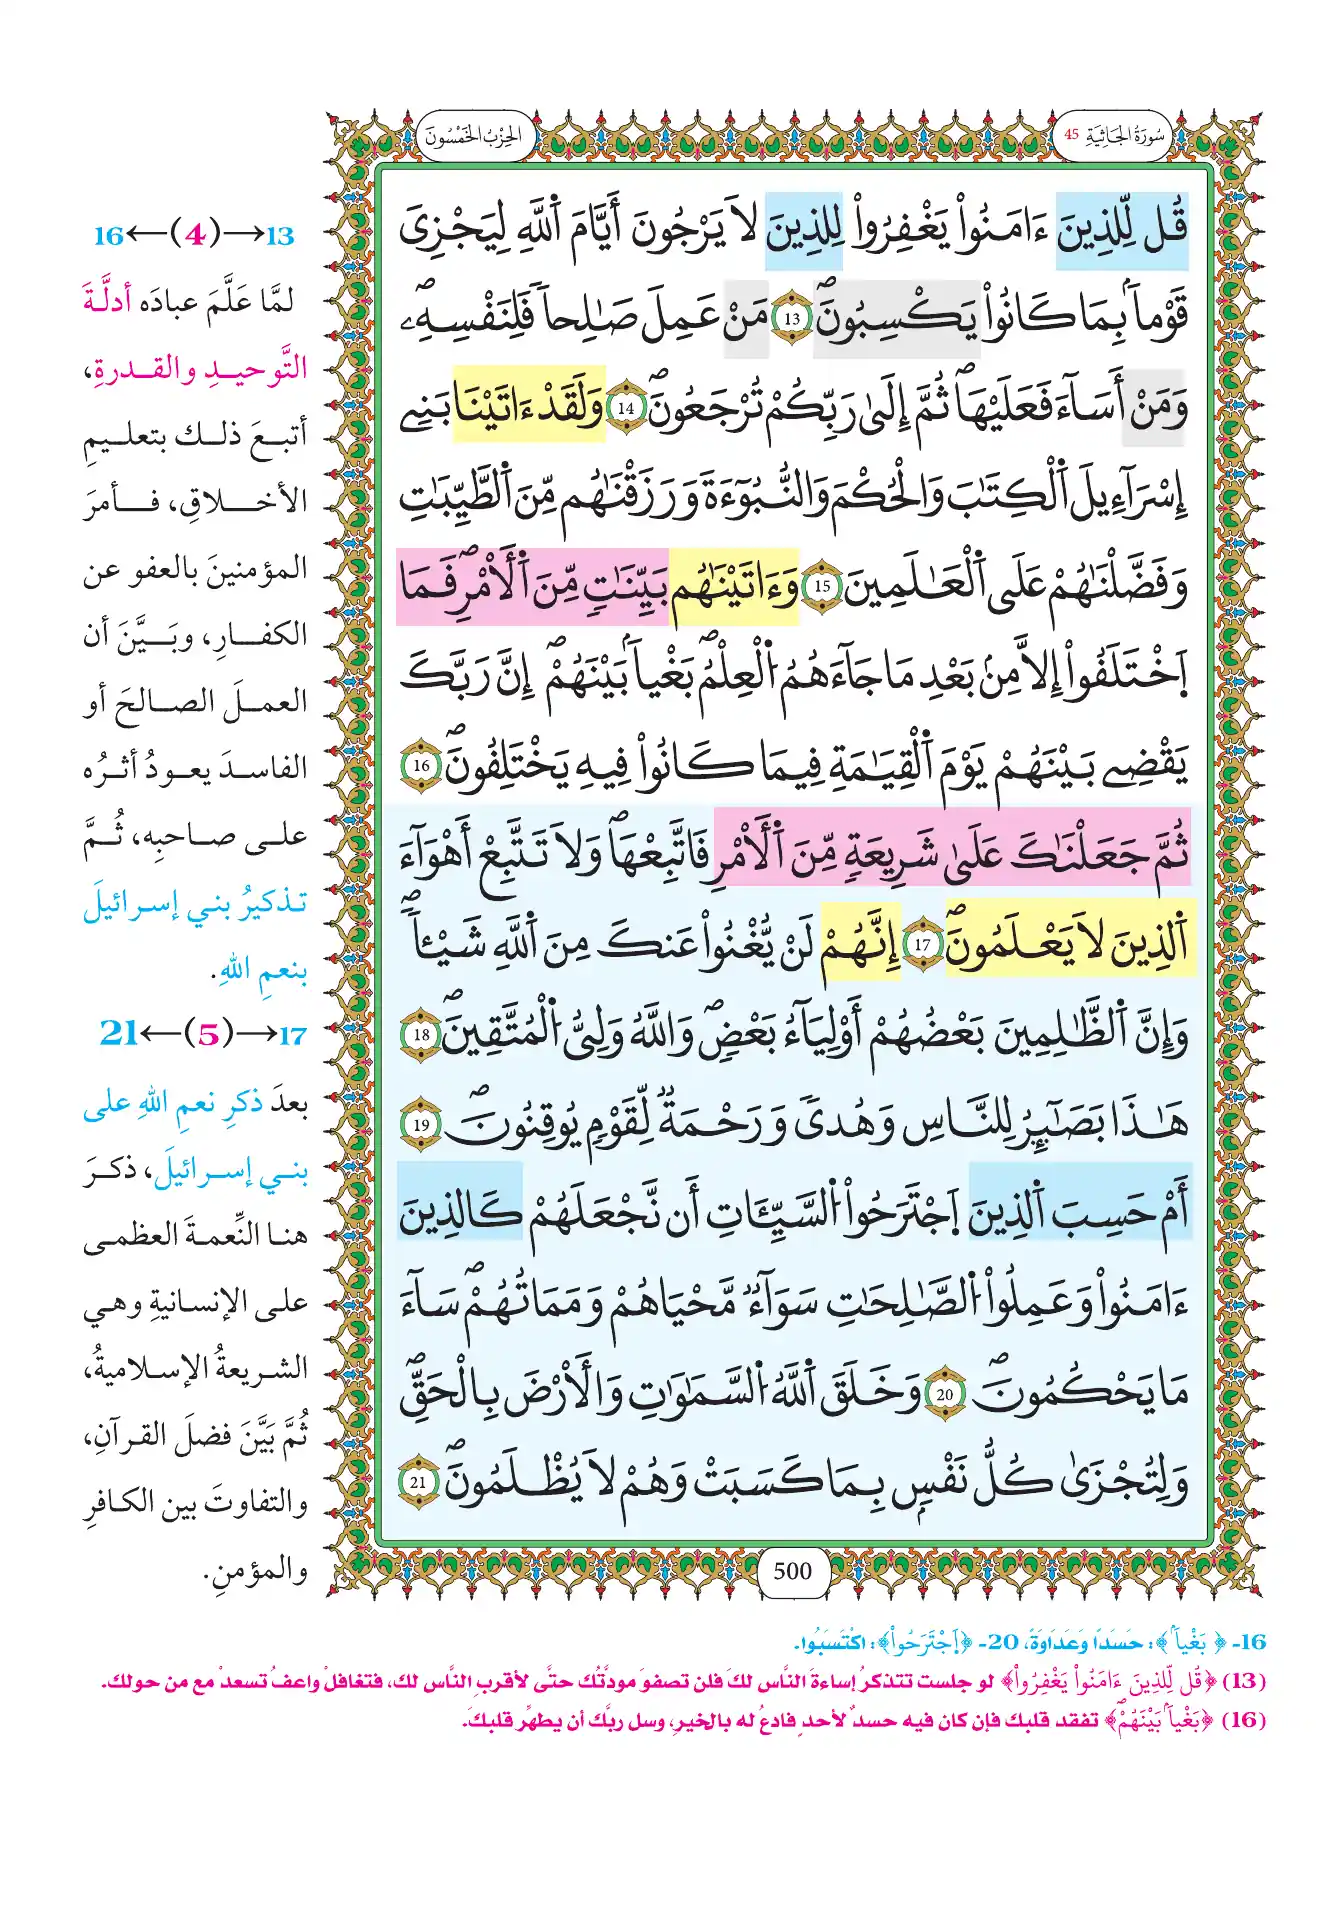 سُورَةُ الجَاثِيَةِ 45
الحِزْبُ الخَمْسُونَ
قُل لِّلذِينَ ءَامَنُواْ يَغْفِرُواْ لِلذِينَ لَا يَرْجُونَ أَيَّامَ اَ۬للَّهِ لِيَجْزِىَ
قَوْماَۢ بِمَا كَانُواْ يَكْسِبُونَۖ 13 مَنْ عَمِلَ صَٰلِحاٗ فَلِنَفْسِهِۦۖ
وَمَنْ أَسَآءَ فَعَلَيْهَاۖ ثُمَّ إِلَىٰ رَبِّكُمْ تُرْجَعُونَۖ 14 وَلَقَدْ ءَاتَيْنَا بَنِےٓ
إِسْرَآءِيلَ اَ۬لْكِتَٰبَ وَالْحُكْمَ وَالنُّبُوٓءَةَ وَرَزَقْنَٰهُم مِّنَ اَ۬لطَّيِّبَٰتِ
وَفَضَّلْنَٰهُمْ عَلَى اَ۬لْعَٰلَمِينَ 15 وَءَاتَيْنَٰهُم بَيِّنَٰتٖ مِّنَ اَ۬لْأَمْرِۖ فَمَا
اَ۪خْتَلَفُوٓاْ إِلَّا مِنۢ بَعْدِ مَا جَآءَهُمُ اُ۬لْعِلْمُۖ بَغْياَۢ بَيْنَهُمْۖ إِنَّ رَبَّكَ
يَقْضِے بَيْنَهُمْ يَوْمَ اَ۬لْقِيَٰمَةِ فِيمَا كَانُواْ فِيهِ يَخْتَلِفُونَۖ 16
ثُمَّ جَعَلْنَٰكَ عَلَىٰ شَرِيعَةٖ مِّنَ اَ۬لْأَمْرِ فَاتَّبِعْهَاۖ وَلَا تَتَّبِعْ أَهْوَآءَ
اَ۬لذِينَ لَا يَعْلَمُونَۖ 17 إِنَّهُمْ لَنْ يُّغْنُواْ عَنكَ مِنَ اَ۬للَّهِ شَيْـٔاٗۖ
وَإِنَّ اَ۬لظَّٰلِمِينَ بَعْضُهُمْ أَوْلِيَآءُ بَعْضٖۖ وَاللَّهُ وَلِىُّ اُ۬لْمُتَّقِينَۖ 18
هَٰذَا بَصَٰٓئِرُ لِلنَّاسِ وَهُدىٗ وَرَحْمَةٞ لِّقَوْمٖ يُوقِنُونَۖ 19
أَمْ حَسِبَ اَ۬لذِينَ اَ۪جْتَرَحُواْ اُ۬لسَّيِّـَٔاتِ أَن نَّجْعَلَهُمْ كَالذِينَ
ءَامَنُواْ وَعَمِلُواْ اُ۬لصَّٰلِحَٰتِ سَوَآءٞ مَّحْيَاهُمْ وَمَمَاتُهُمْۖ سَآءَ
مَا يَحْكُمُونَۖ 20 وَخَلَقَ اَ۬للَّهُ اُ۬لسَّمَٰوَٰتِ وَالْأَرْضَ بِالْحَقِّۖ
وَلِتُجْزَىٰ كُلُّ نَفْسِۢ بِمَا كَسَبَتْ وَهُمْ لَا يُظْلَمُونَۖ 21
500
13→(4)←16
لمَّا عَلَّمَ عبادَه أدلَّةَ
التَّوحيدِ والقدرةِ،
أتبعَ ذلك بتعليمِ
الأخلاقِ، فأمرَ
المؤمنينَ بالعفو عن
الكفارِ، وبَيَّنَ أن
العملَ الصالحَ أو
الفاسدَ يعودُ أثرُه
على صاحبِه، ثُمَّ
تذكيرُ بني إسرائيلَ
بنعمِ اللهِ.
17→(5)←21
بعدَ ذكرِ نعمِ اللهِ على
بني إسرائيلَ، ذكرَ
هنا النِّعمةَ العظمى
على الإنسانيةِ وهي
الشريعةُ الإسلاميةُ،
ثُمَّ بَيَّنَ فضلَ القرآنِ،
والتفاوتَ بين الكافرِ
والمؤمنِ.
16- ﴿بَغْياَۢ﴾: حَسَدًا وَعَدَاوَةً، 20- ﴿اَ۪جْتَرَحُواْ﴾: اكْتَسَبُوا.
(13) ﴿قُل لِّلذِينَ ءَامَنُواْ يَغْفِرُواْ﴾ لو جلست تتذكرُ إساءةَ النَّاس لكَ فلن تصفوَ مودَّتُك حتَّى لأقربِ النَّاس لك، فتغافلْ واعفُ تسعدْ مع من حولك.
(16) ﴿بَغْياَۢ بَيْنَهُمْۖ﴾ تفقد قلبك فإن كان فيه حسدٌ لأحدٍ فادعُ له بالخيرِ، وسل ربَّك أن يطهِّر قلبكَ.